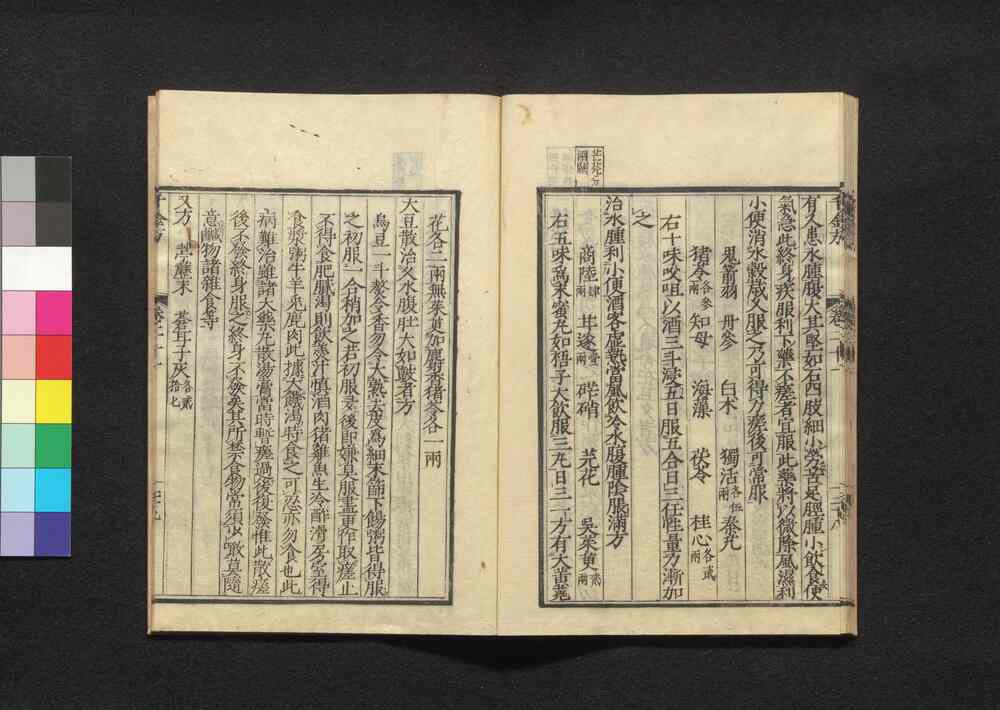 有人患水腫腹大其堅如石四肢細小勞苦足脛腫小飲食便
氣急此終身疾服利下藥不瘥者宜服此藥將以微除風濕利
小便消水穀歲久服之乃可得力瘥後可常服
鬼箭羽 丹參 白朮 獨活各伍兩 秦艽
猪苓各參兩 知母 海藻 茯苓 桂心各貳兩
右十味㕮咀以酒三斗浸五日服五合日三任性量力漸加
之
治水腫利小便酒客虛熱當風飲冷水腹腫陰脹滿方
商陸肆兩 甘遂壹兩 芒硝 芫花 吳茱萸貳兩
右五味為末蜜丸如梧子大飲服三丸日三一方有大黃蕘
花各二兩無茱萸加麝香猪苓各一兩
大豆散治久水腹肚大如鼓者方
烏豆一斗熬令香勿令大熟去皮為細末篩下餳粥皆得服
之初服一合稍加之若初服多後即嫌臭服盡更作取瘥止
不得食肥膩渴則飲羹汁慎酒肉猪雞魚生冷酢滑房室得
食漿粥牛羊兔鹿肉此據大餓渴時食之可忍亦勿食也此
病難治雖諸大藥丸散湯膏當時暫瘥過後復發惟此散瘥
後不發終身服之終身不發矣其所禁食物常須少噉莫隨
意鹹物諸雜食等
又方 葶藶末 蒼耳子灰各貳拾匕
千金方